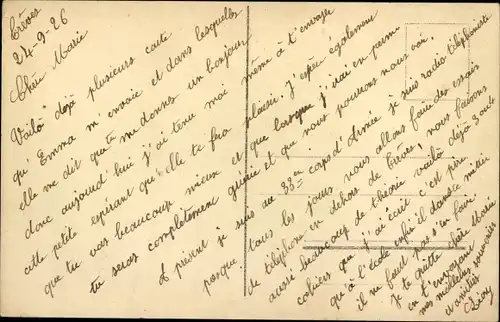 Trèves
24-9-26
Chère Marie
Voilà déjà plusieurs carte
qu'Emma m'envoie et dans lesquelles
elle me dit que tu me donnes un bonjour
donc aujourd'hui j'ai tenu moi même à t'envoyer
cette petite espérant qu'elle te fra plaisir. J'espère également
que tu vas beaucoup mieux et que lorsque j'irai en perme
tu seras complètement guérie et que nous pourrons nous voir.
A présent je suis au 33em corps d'Armée je suis radio téléphoniste
presque tous les jours nous allons faire des essais
de téléphone en dehors de Trèves nous faisons
aussi beaucoup de théorie voilà déjà 3 ou 4
cahiers que j'ai écrit c'est pire
qu'à l'école enfin il dans ce métier
il ne faut pas s'en faire.
Je te quitte chère Marie
en t'envoyant
mes meilleurs souvenirs
d'amitiés